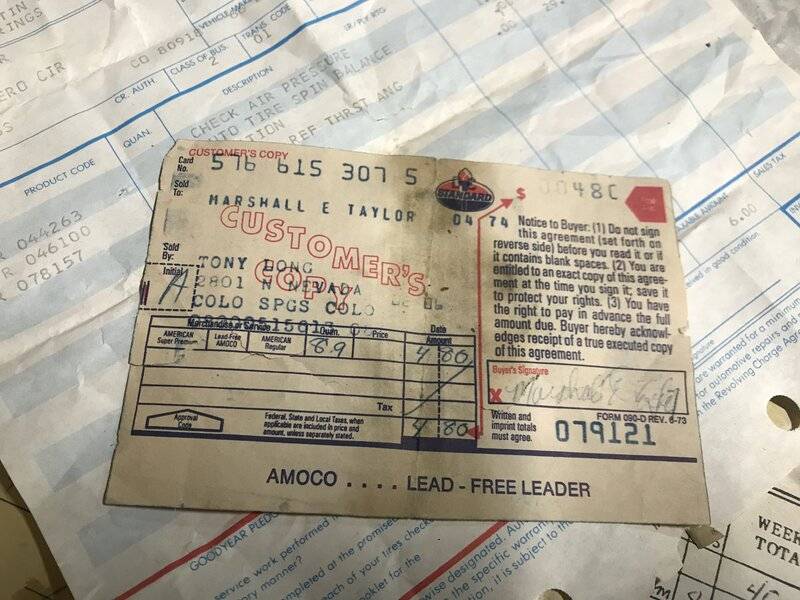 CO 80918
VEHICLE MAKE
CR. AUTH
CLASS OF BUS.
2
TRANS. CODE
01
PRODUCT CODE
QUAN.
DESCRIPTION
CHECK AIR PRESSURE
AUTO TIRE SPIN BALANCE
REF THRST ANG
.00
.29
SALES TAX
6.00
044263
046100
078157
CUSTOMER'S COPY
Card No.
576 615 307 5
STANDARD
$
048C
Sold To:
MARSHALL E TAYLOR
04 74
CUSTOMER'S COPY
Sold By:
TONY LONG
2801 N NEVADA
COLO SPGS COLO
Initial
A
Merchandise or Service
Quan.
Price
Date
Amount
AMERICAN Super Premium
Lead-Free AMOCO
AMERICAN Regular
8.9
4 80
Tax
Approval Code
Federal, State and Local Taxes, when applicable are included in price and amount, unless separately stated.
4 80
Notice to Buyer: (1) Do not sign
this agreement (set forth on
reverse side) before you read it or if
it contains blank spaces. (2) You are
entitled to an exact copy of this agree-
ment at the time you sign it; save it
to protect your rights. (3) You have
the right to pay in advance the full
amount due. Buyer hereby acknowl-
edges receipt of a true executed copy
of this agreement.
Buyer's Signature
X Marshall E Taylor
Written and
imprint totals
must agree.
FORM 090-D REV. 6-73
079121
AMOCO . . . . LEAD - FREE LEADER
GOODYEAR PLEDGE
service work performed
ary manner?
completed at the promised
each of your tires checked
oklet for the
wise designated.
the specific warranty
n, it is subject to the
are warranted for a minimum
or automotive repairs and
the Revolving Charge
ived in good condition
WEEK
TOTA